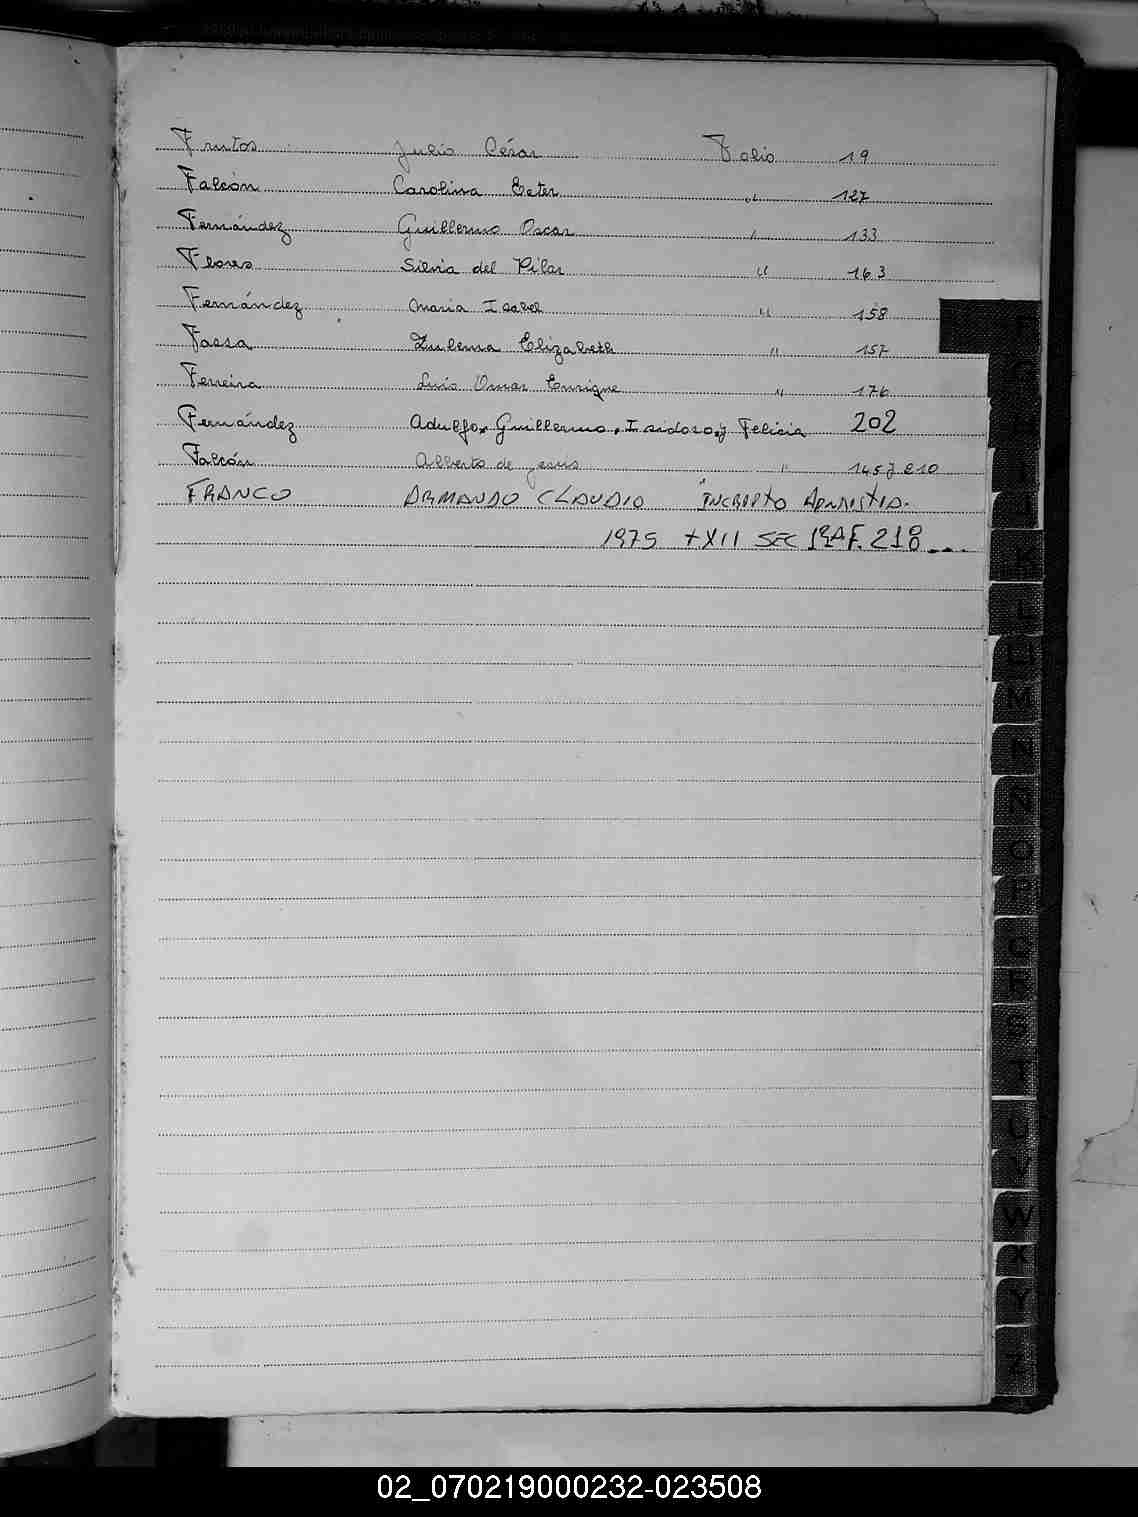 Frutos Julio César Folio 19
Falcón Carolina Ester " 127
Fernández Guillermo Oscar " 133
Flores Silvia del Pilar " 163
Fernández Maria Isabel " 158
Faesa Zulema Elizabeth " 157
Ferreira Luis Omar Enrique " 176
Fernández Adolfo, Guillermo, Isidoro, y Felicia 202
Falcón Alberto de Jesus " 145 y 210
FRANCO ARMANDO CLAUDIO INCRIPTO
1975 XII SEC F. 218
K
L
M
N
W
X
Y
Z
02_070219000232-023508